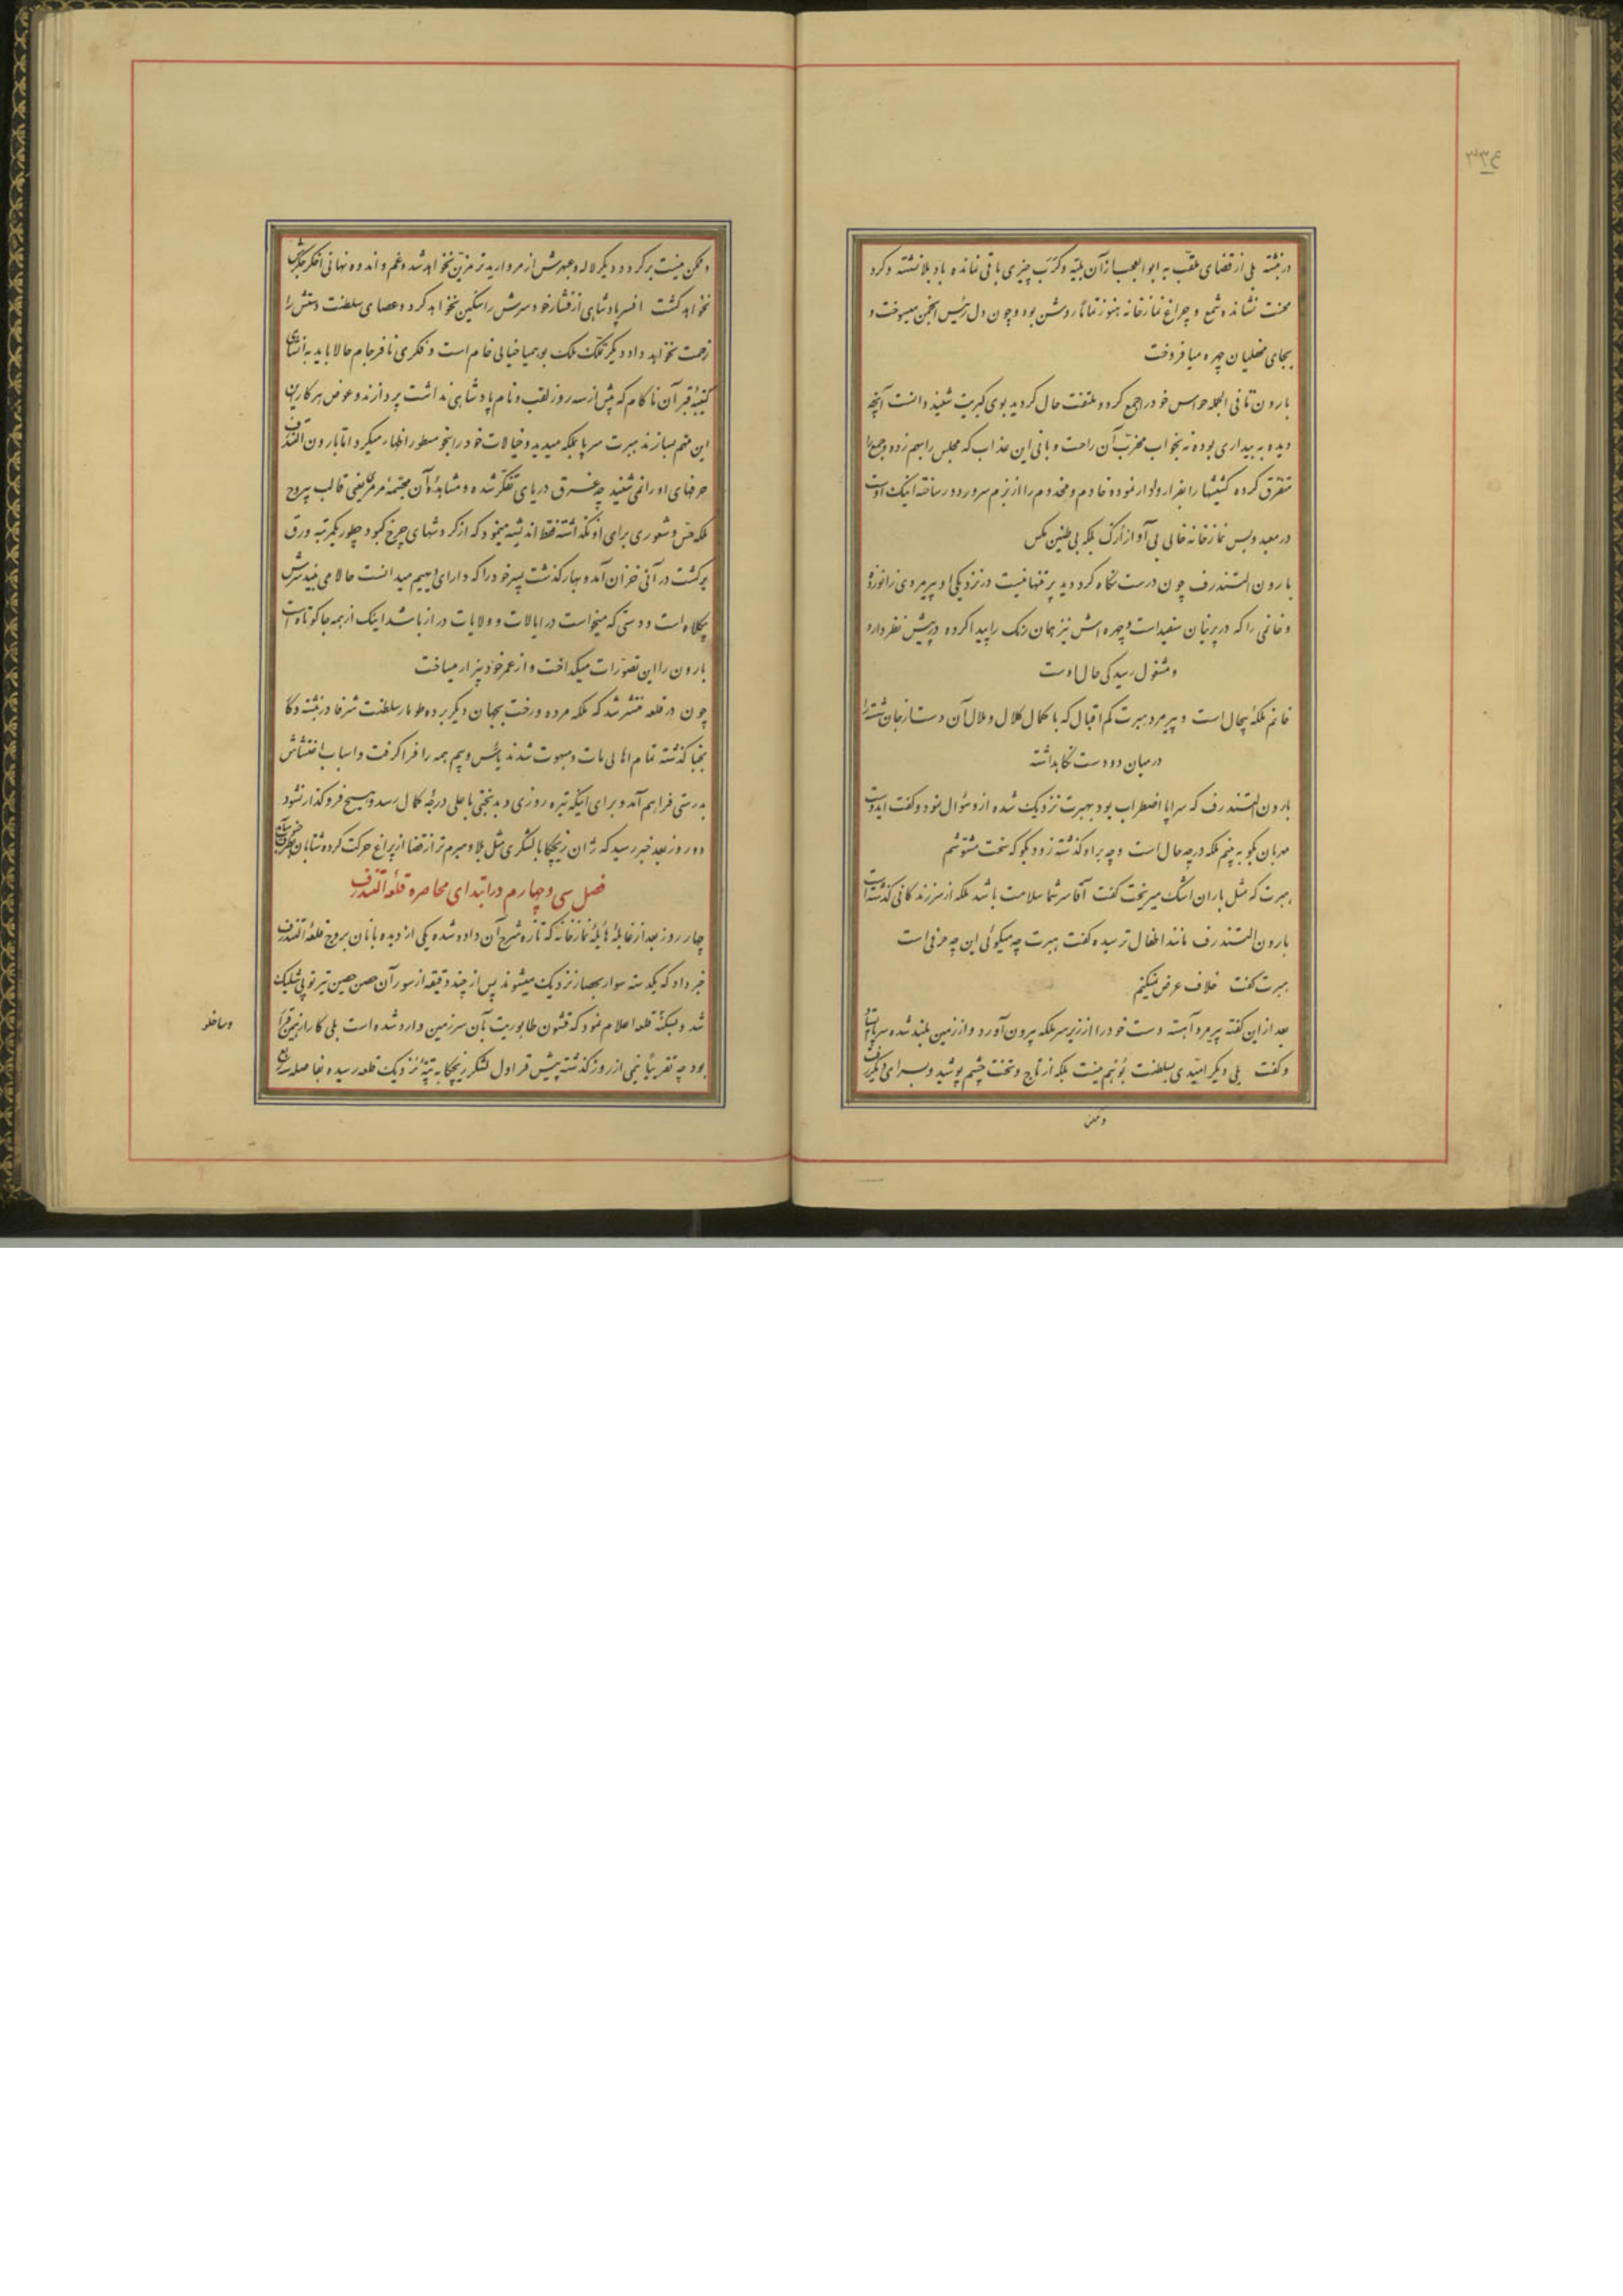 ۳۳۴
در نبشته بلی از قضای ملقب به ابوالعجب از آن بلیه و کرب چیزی باقی نمانده باد بلا نشسته و کرد
محنت نشانده شمع و چراغ نمازخانه هنوز تماماً روشن بود و چون دل رئیس انجمن میسوخت و
بجای مصلیان چهره میافروخت
بارون تا فی الجمله حواس خود را جمع کرد و ملتفت حال کردید بوی کبریت شنید دانست آنچه
دیده به بیداری بوده نه بخواب مخرب آن راحت و بانی این عذاب که مجلس را بهم زده و جمع را
متفرق کرده کشیشها را بفرار وادار نموده خادم و مخدوم را از بزم سرور دور ساخته اینک اوست
در معبد و بس نمازخانه خالی بی آواز ارک بلکه بی طنین مکس
بارون التندرف چون درست نگاه کرد دید پر تنها نیست در نزدیکی او پیرمردی زانو زده
و خانمی را که در پرنیان سفید است و چهره اش نیز همان رنک را پیدا کرده در پیش نظر دارد
و مشغول رسیدکی حال اوست
خانم ملکه بیحال است و پیرمرد هبرت کم اقبال که با کمال کلال و ملال آن دست از جان شسته را
در میان دو دست نکاهداشته
بارون التندرف که سراپا اضطراب بود بهبرت نزدیک شده از و سؤال نمود و گفت ایدوست
مهربان بکو به بینم ملکه در چه حال است و چه بر او کذشته زود بکو که سخت مشوشم
هبرت که مثل باران اشک میریخت کفت آقا سر شما سلامت باشد ملکه از سر زندکانی کذشته است
بارون التندرف مانند اطفال ترسیده کفت هبرت چه میکوئی این چه حرفی است
هبرت کفت خلاف عرض نمیکنم
بعد از این کفته پیرمرد آهسته دست خود را از زیر سر ملکه بیرون آورد و از زمین بلند شده سر پا
و کفت بلی دیکر امیدی بسلطنت بوهیم نیست ملکه از تاج و تخت چشم پوشید و بسرای دیکر
و ممکن
و ممکن نیست برکردد دیکر لاله و عبهرش از مروارید تر مزین نخواهد شد و غم و اندوه نهانی اخکر جکرش
نخواهد کشت افسر پادشاهی از فشار خود سرش را سنکین نخواهد کرد و عصای سلطنت دستش را
زحمت نخواهد داد دیکر تملک ملک بوهمیا خیالی خام است و فکری نافرجام حالا باید به انشای
کتیبه قبر آن ناکام که بیش از سه روز لقب و نام پادشاهی نداشت پردازند و عوض هر کار
این مهم بسازند هبرت سرپا بملکه میدید و خیالات خود را بنحو مسطور اظهار میکرد اما بارون التندرف
حرفهای او را نمی شنید چه غرق دریای تفکر شده و مشاهده آن مجسمه مرمر یعنی قالب بیروح
ملکه حس و شعوری برای او نکذاشته فقط اندیشه مینمود که از کردشهای چرخ کبود چطور یکمرتبه ورق
برکشت در آنی خزان آمد و بهار کذشت پسر خود را که دارای دیهیم میدانست حالا می بیند سرش
بیکلاه است و دستی که میخواست در ایالات و ولایات دراز باشد اینک از همه جا کوتاه است
بارون را این تصورات میکداخت و از عمر خود بیزار میساخت
چون در قلعه منتشر شد که ملکه مرده و رخت بجهان دیکر برده طومار سلطنت شرفا در نبشته و کا
بخبا کذشته تمام اهالی مات و مبهوت شدند یأس و بیم همه را فرا کرفت و اسباب اغتشاش
بدرستی فراهم آمد و برای اینکه تیره روزی و بدبختی با علی درجه کمال رسد و هیچ فروکذار نشود
دو روز بعد خبر رسید که ژان زیچکا با لشکری مثل بلا و مبرم تر از قضا از پراغ حرکت کرده شتابان
فصل سی و چهارم در ابتدای محاصره قلعه التندرف
چهار روز بعد از غایله هایله نمازخانه که تازه شرح آن داده شده یکی از دیده بانان بروج قلعه التندرف
خبر داد که یکدسته سوار بحصار نزدیک میشوند پس از چند دقیقه از سور آن حصن حصین تیر توپی شلیک
شد و بسکنه قلعه اعلام نمود که قشون طابوریت بآن سرزمین وارد شده است بلی کار از همین قرار
بود چه تقریباً نیمی از روز کذشته پیش قراول لشکر زیچکا به تپه نزدیک قلعه رسیده بفاصله
و ساخلو